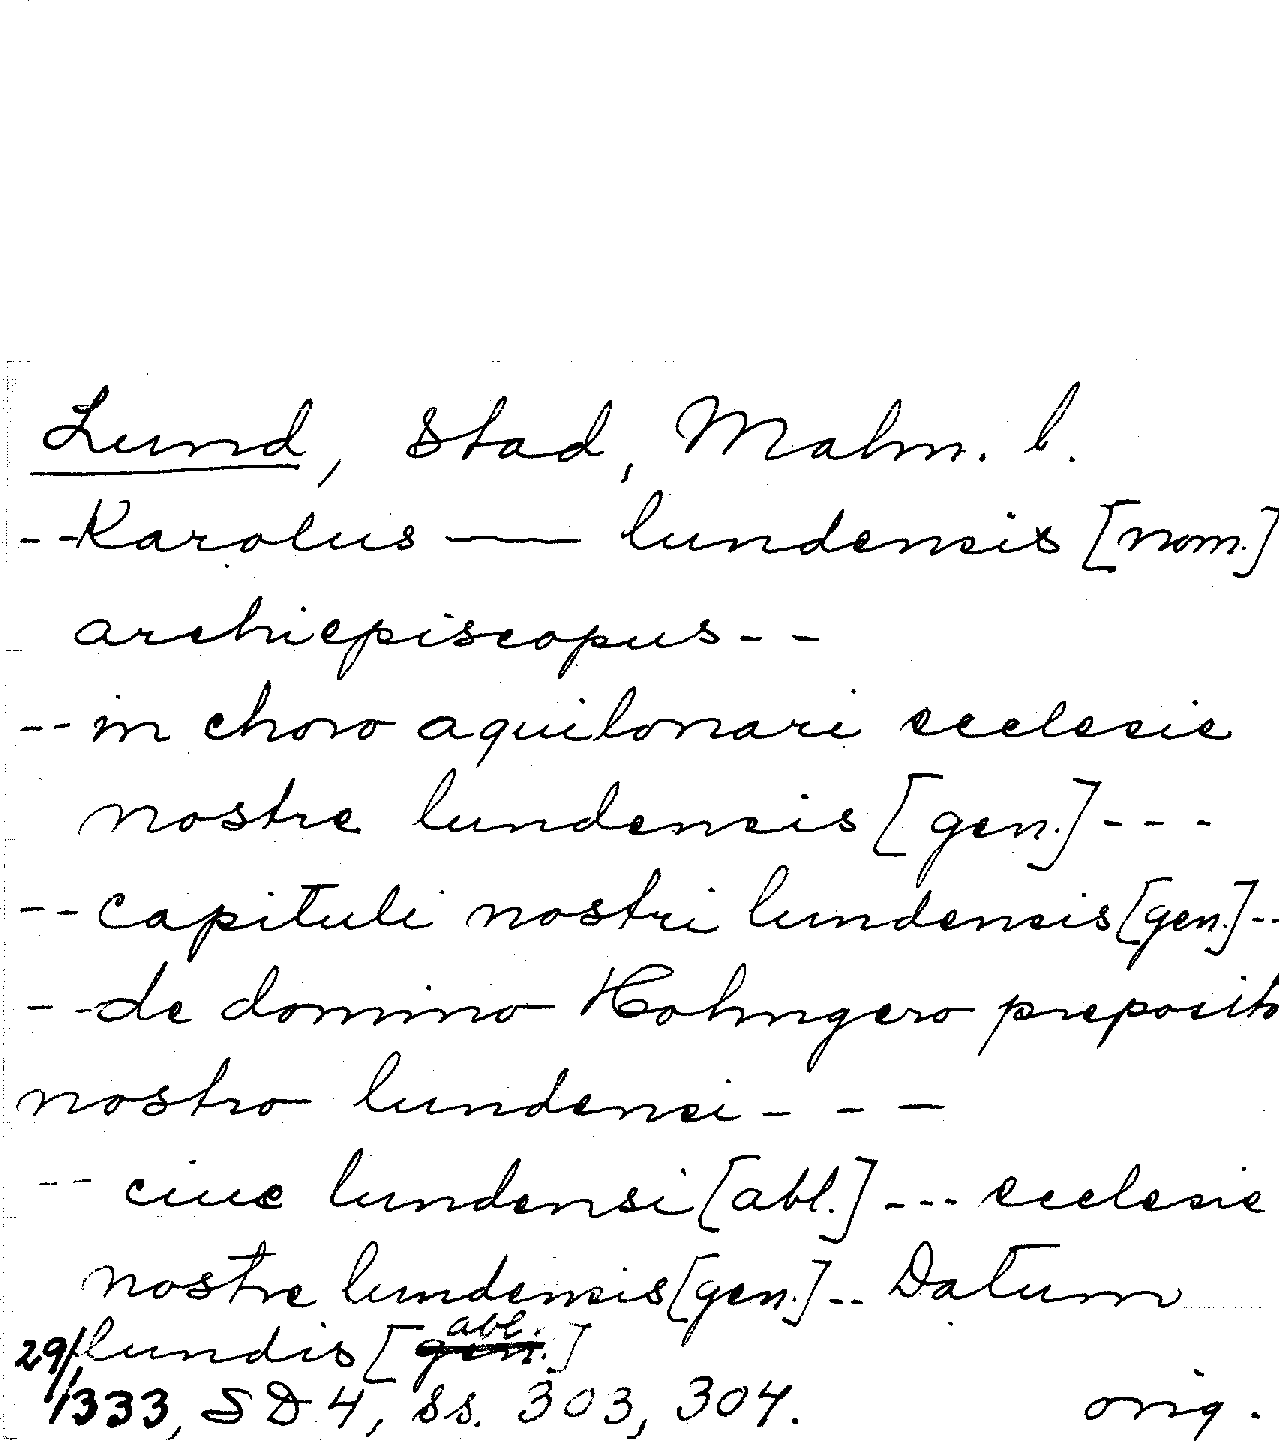 Lund, stad, Malm. l.
--Karolus — lundensis [nom.]
archiepiscopus--
--in choro aquilonari ecclesie
nostre lundensis [gen.]---
--capituli nostri lundensis [gen.]--
--de domino Holmgero preposito
nostro lundensi---
--ciue lundensi [abl.]--- ecclesie
nostre lundensis [gen.]-- Datum
lundis [abl.]
29/1 1333, SD 4, ss. 303, 304. orig.